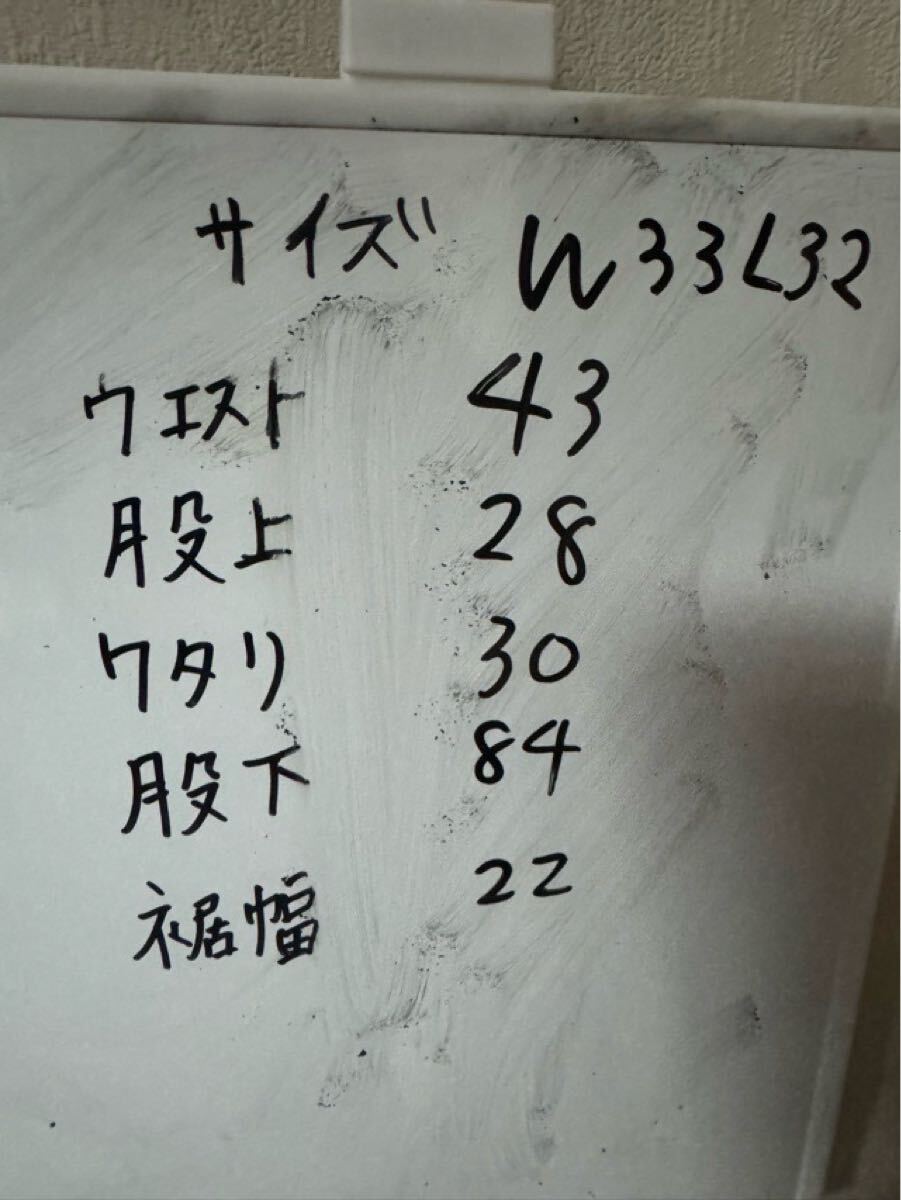 サイズ W33L32
ウエスト 43
股上 28
ワタリ 30
股下 84
裾幅 22